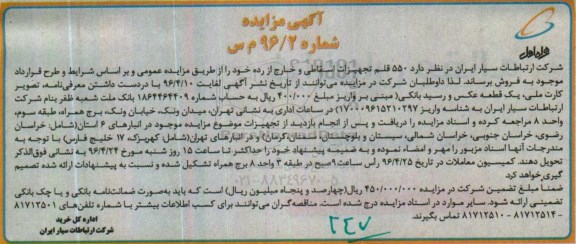 آگهی مزایده
شماره ۹۶/۲ م س
همراه اول
شرکت ارتباطات سیار ایران در نظر دارد ۵۵۰ قلم تجهیزات اسقاطی و خارج از رده خود را از طریق مزایده عمومی و بر اساس شرایط و طرح قرارداد
موجود به فروش برساند. لذا داوطلبان شرکت در مزایده می‌توانند از تاریخ نشر آگهی لغایت ۹۶/۴/۱۰ با دردست داشتن معرفی‌نامه، تصویر
کارت ملی، یک قطعه عکس و رسید بانکی( مبنی بر واریز مبلغ ۴۰۰/۰۰۰ ریال به حساب شماره ۱۸۶۴۴۶۴۴۰۹ بانک ملت شعبه ظفر بنام شرکت
ارتباطات سیار ایران به شناسه واریز ) در ساعات اداری به نشانی تهران، میدان ونک، خیابان ونک، برج همراه، طبقه سوم،
واحد ۸ مراجعه کرده و اسناد مزایده را دریافت و پس از انجام بازدید از تجهیزات موضوع مزایده موجود در انبارهای ۶ استان(شامل: خراسان
رضوی، خراسان جنوبی، خراسان شمالی، سیستان و بلوچستان، سمنان، کرمان) و در انبارهای تهران(شامل کهریزک، ۱۷ خلیج فارس) با توجه به
مندرجات آنها اسناد مزبور را مهر و امضاء نموده و به ضمیمه پیشنهاد خود را حداکثر تا ساعت ۱۵ روز شنبه مورخ ۹۶/۴/۲۴ به نشانی فوق‌الذکر
تحویل دهند. کمیسیون معاملات در تاریخ ۹۶/۴/۲۵ رأس ساعت ۹صبح در طبقه ۳ واحد ۸ برج همراه تشکیل شده و نسبت به پیشنهادات ارائه شده تصمیم
گیری خواهد کرد.
ضمنا مبلغ تضمین شرکت در مزایده ۴۵۰/۰۰۰/۰۰۰ ریال(چهارصد و پنجاه میلیون ریال) است که باید به‌صورت ضمانت‌نامه بانکی و یا چک بانکی
تضمینی ارائه شود. سایر موارد در اسناد مزایده درج شده است. مناقصه‌گران می‌توانند برای کسب اطلاعات بیشتر با شماره تلفن‌های ۸۱۷۱۲۵۰۱
- ۸۱۷۱۲۵۱۴ - ۸۱۷۱۲۵۱۰ تماس بگیرند.
اداره کل خرید
شرکت ارتباطات سیار ایران
۲۴۷